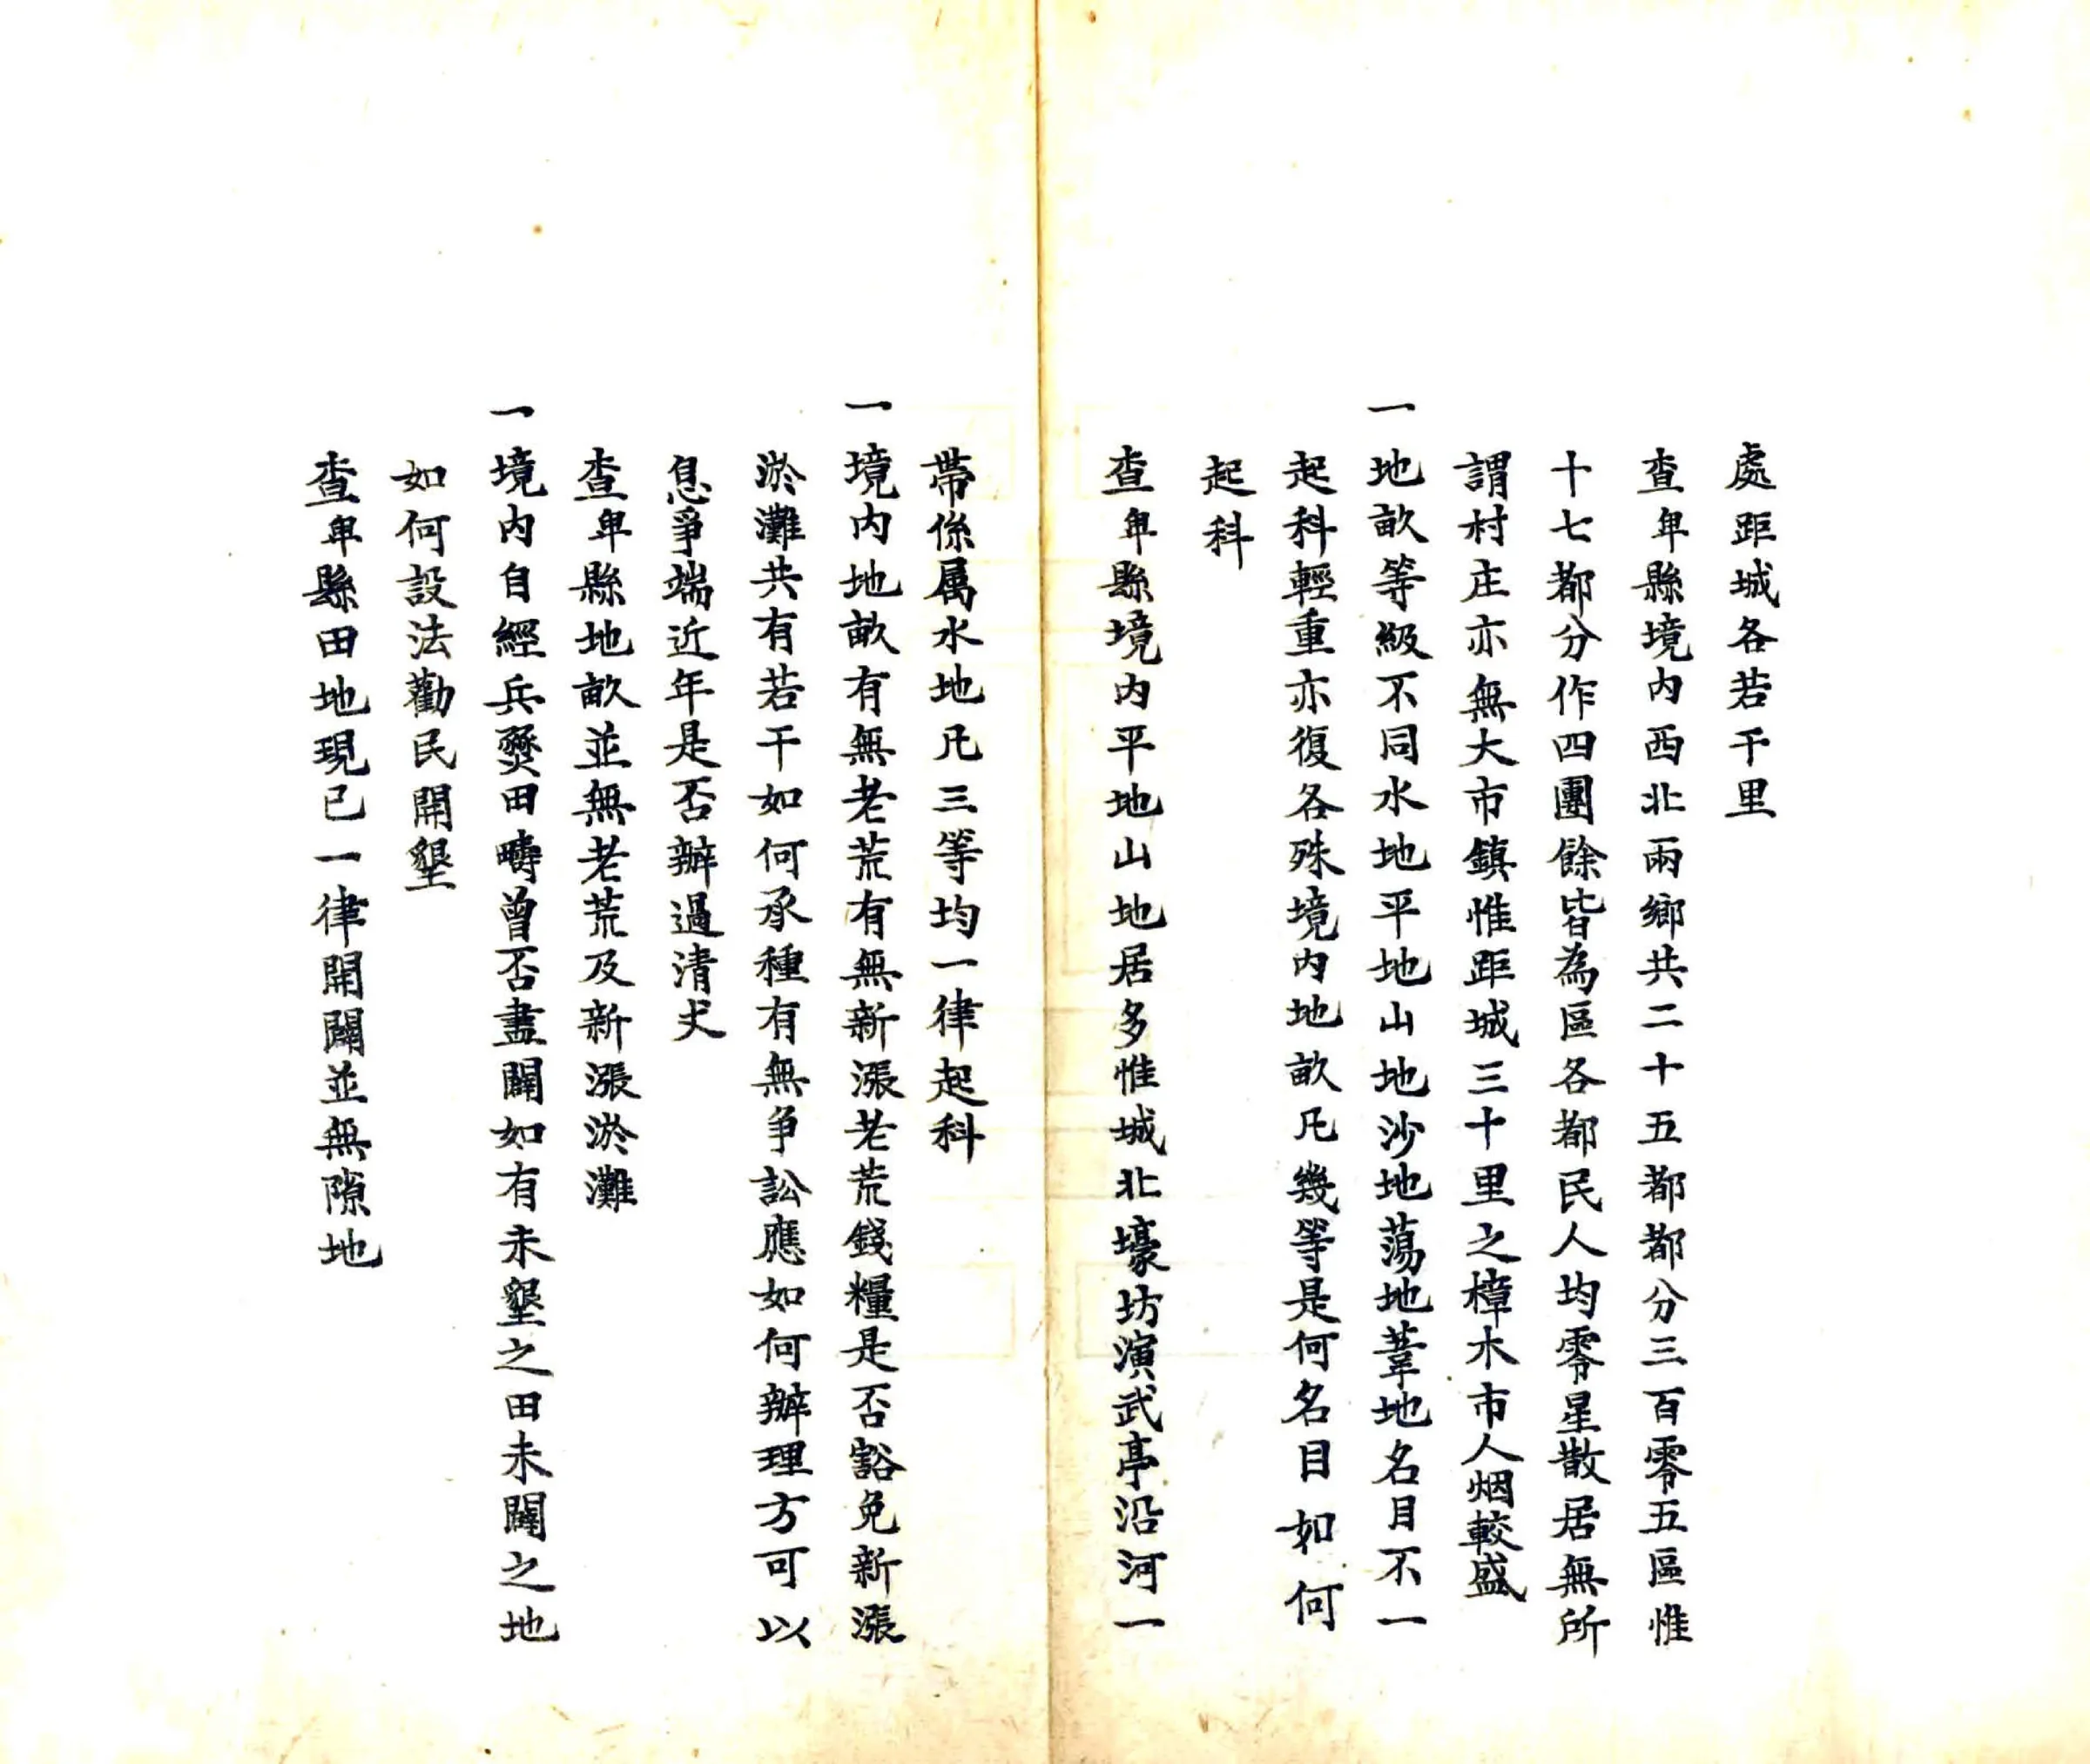 處距城各若干里
查卑縣境內西北兩鄉共二十五都都分三百零五區惟
十七都分作四團餘皆為區各都民人均零星散居無所
謂村庄亦無大市鎮惟距城三十里之樟木市人烟較盛
一地畝等級不同水地平地山地沙地蕩地葦地名目不一
起科輕重亦復各殊境內地畝凡幾等是何名目如何
起科
查卑縣境內平地山地居多惟城北壕坊演武亭沿河一
帶係属水地凡三等均一律起科
一境內地畝有無老荒有無新漲老荒錢糧是否豁免新漲
淤灘共有若干如何承種有無爭訟應如何辦理方可以
息爭端近年是否辦過清丈
查卑縣地畝並無老荒及新漲淤灘
一境內自經兵燹田疇曾否盡闢如有未墾之田未闢之地
如何設法勸民開墾
查卑縣田地現已一律開闢並無隙地